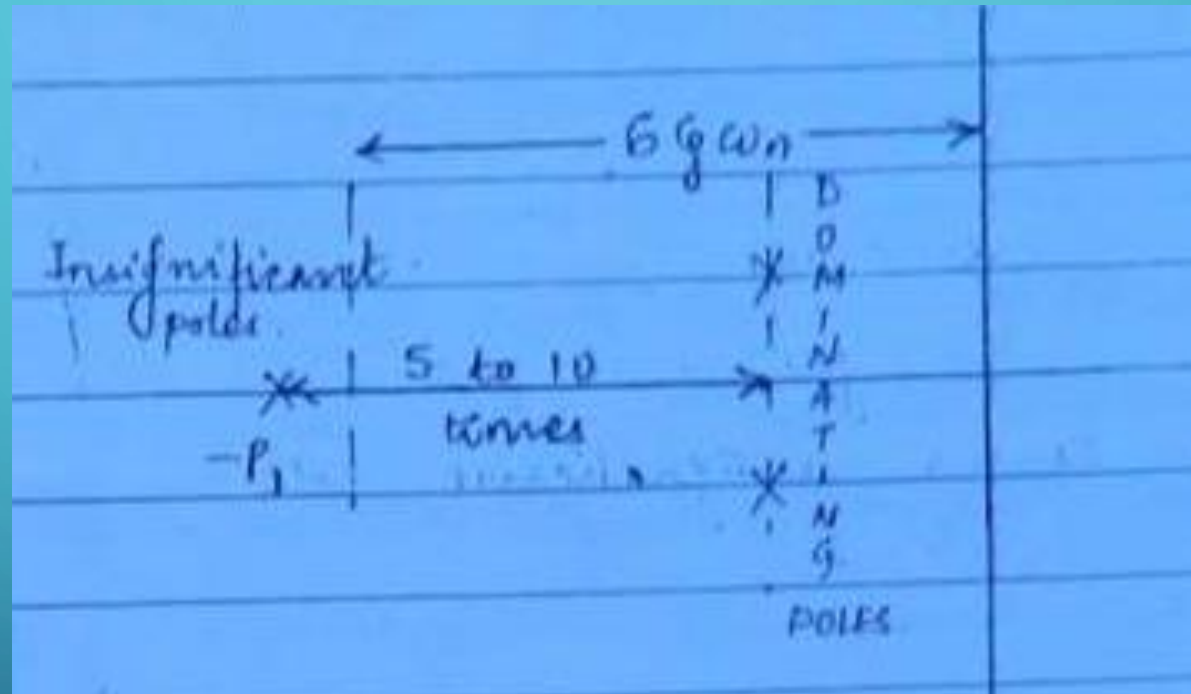 6 ζ ωn
Insignificant
poles
5 to 10
times
-P1
DOMINATING
POLES